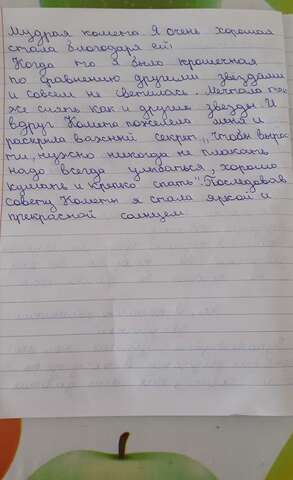 Мудрая комета. Я очень хорошая
стала благодаря ей!
Когда то я было крошечная
по сравнению другими звездами
и совсем не светилась. Мечтала так
же сиять как и другие звезды. И
вдруг Комета пожелела меня и
раскрыла важный секрет: „Чтобы вырос
ти, нужно никогда не плакать
надо всегда улыбаться, хорошо
кушать и крепко спать". Последовав
совету Кометы я стала яркой и
прекрасной солнцем